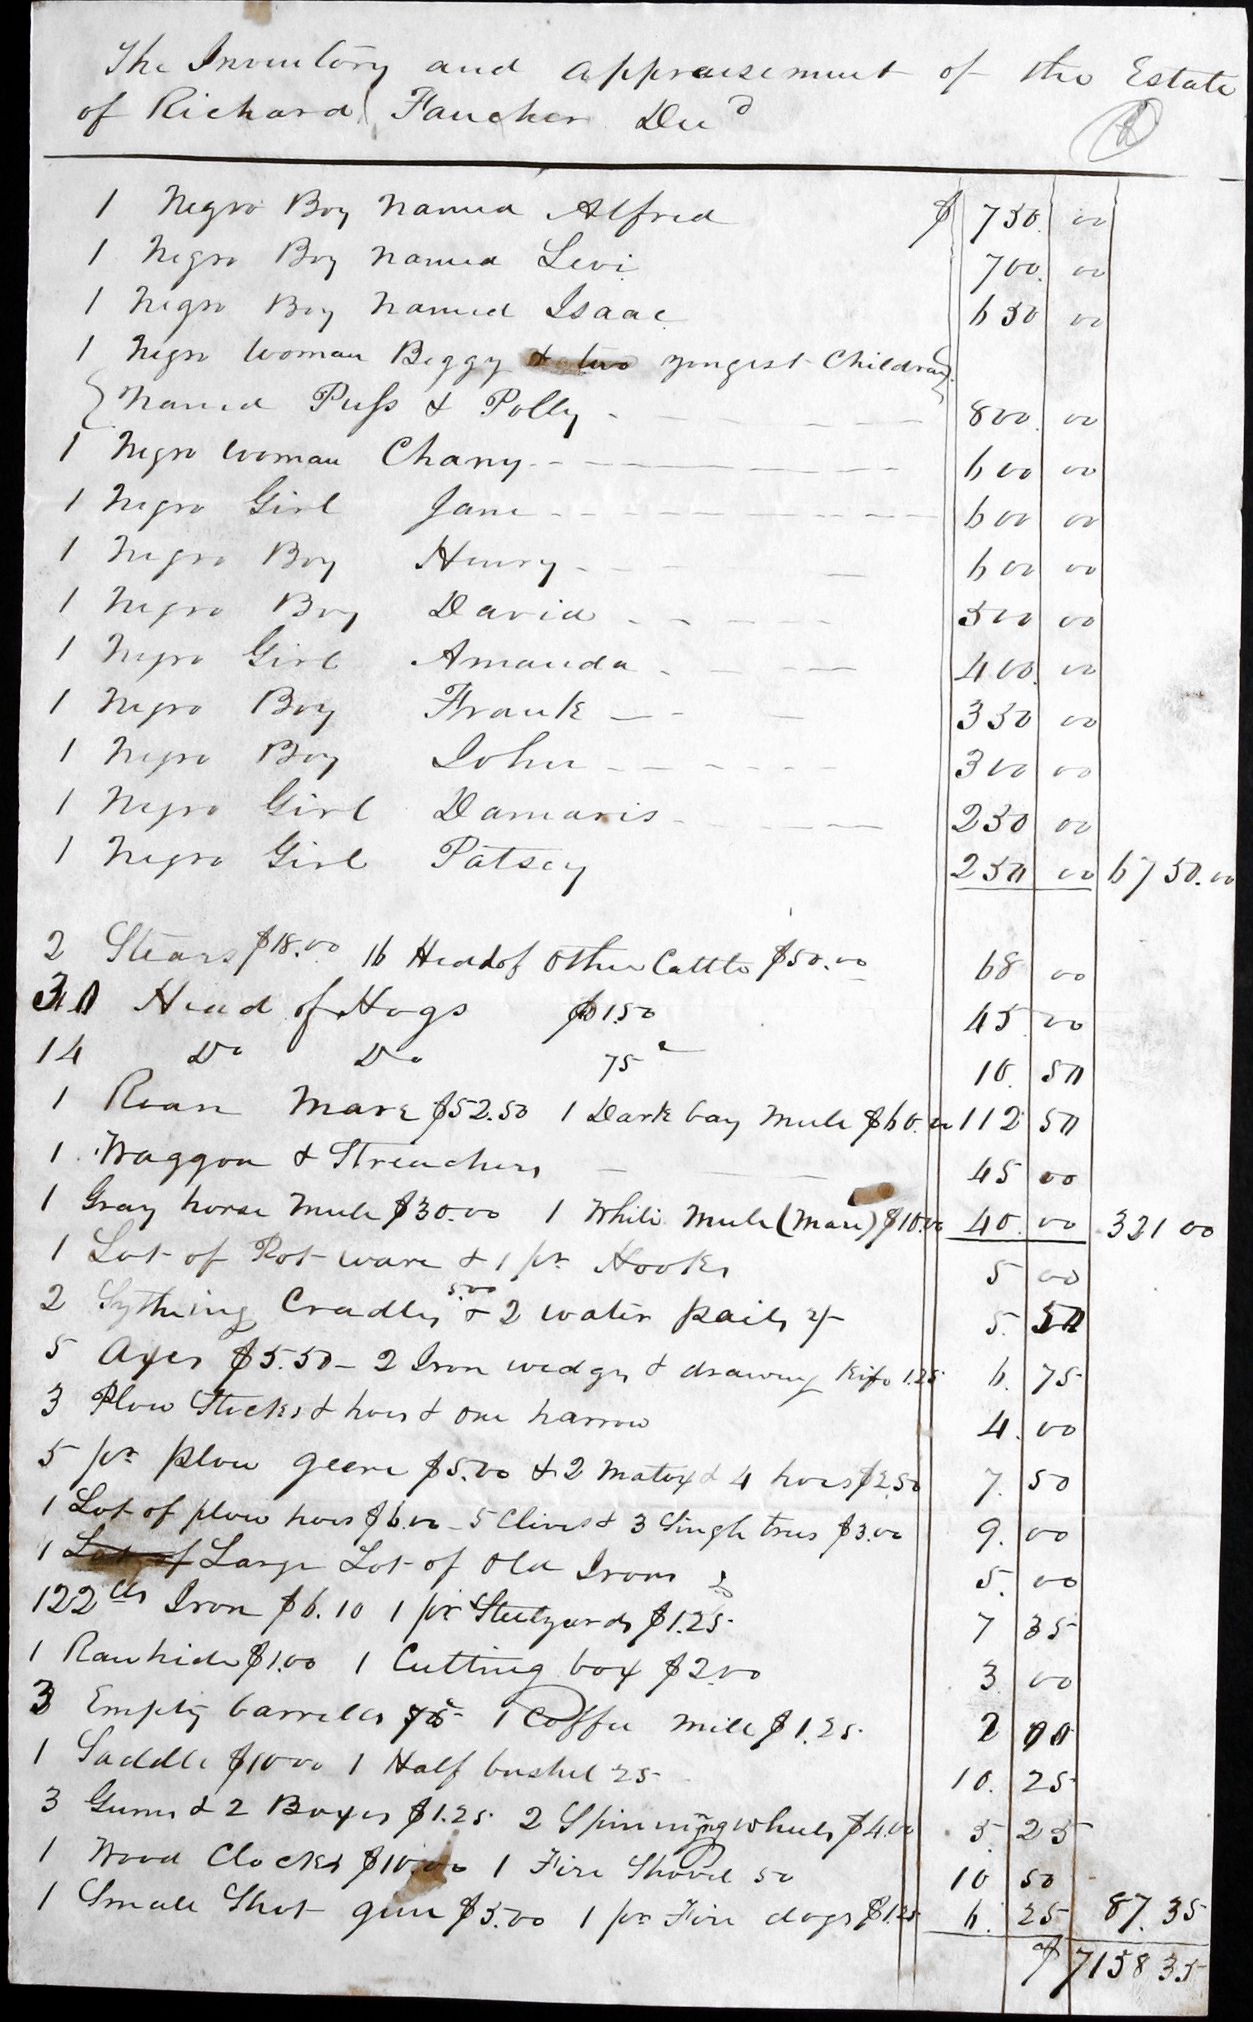 The Inventory and appraisement of the Estate
of Richard Faucher Decd
1 Negro Boy named Alfred $ 750.00
1 Negro Boy named Levi 700.00
1 Negro Boy named Isaac 650 00
1 Negro woman Beggy & two yongest Children
named Puss & Polly - 800.00
1 Negro woman Chany 600 00
1 Negro Girl Jane 600 00
1 Negro Boy Henry 600 00
1 Negro Boy David 500 00
1 Negro Girl Amanda 400.00
1 Negro Boy Frank 350 00
1 Negro Boy John 300 00
1 Negro Girl Damaris 250 00
1 Negro Girl Patsey 250 00 6750.00
2 Stears $18.00 16 Head of other Cattle $50.00 68 00
30 Head of Hogs $1.50 45 00
14 Do Do 75c 10.50
1 Roan Mare $52.50 1 Dark bay Mule $60.00 112 50
1 Waggon & Streachers 45 00
1 Gray horse Mule $30.00 1 White Mule (Mare) $10.00 40.00 321 00
1 Lot of Pot ware & 1 pr Hooks 5 00
2 Sything Cradles 5.00 & 2 water pails 5.50
5 Axes $5.50 - 2 Iron wedges & drawing Kife 1.25 6.75
3 Plow Stocks & hoes & one harrow 4.00
5 pr plow geere $5.00 & 2 Matox & 4 hoes $2.50 7.50
1 Lot of plow hoes $6.00 - 5 Clives & 3 Single trees $3.00 9.00
1 Lot of Large Lot of Old Irons 5.00
122 lbs Iron $6.10 1 pr Steelyards $1.25 7 35
1 Rawhide $1.00 1 Cutting box $2.00 3.00
3 Empty barrells 75 1 Coffee Mill $1.25 2 00
1 Saddle $10.00 1 Half bushel 25 10.25
3 Gums & 2 Boxes $1.25 2 Spinning wheels $4.00 5.25
1 Wood Clocks $10.00 1 Fire Shovel 50 10 50
1 Small Shot gun $5.00 1 pr Fire dogs $1.25 6.25 87.35
$ 7158 35